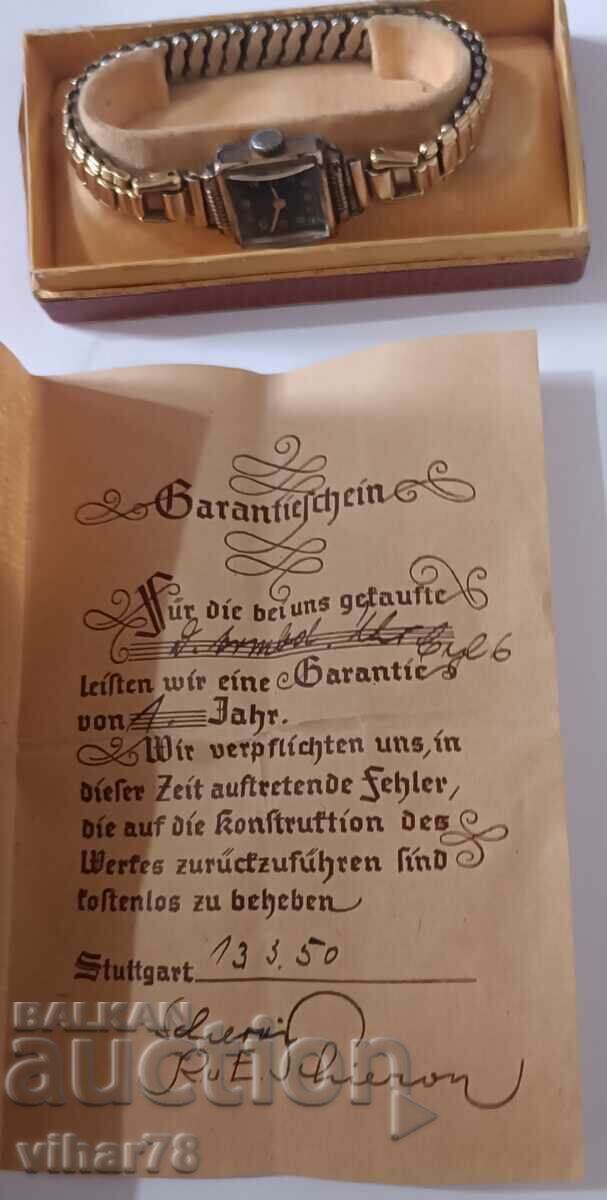 Garantieschein
Für die bei uns gekaufte
d. Armbd. Uhr Cyl 6
leisten wir eine Garantie
von 1. Jahr.
Wir verpflichten uns, in
dieser Zeit auftretende Fehler,
die auf die Konstruktion des
Werkes zurückzuführen sind
kostenlos zu beheben
Stuttgart 13 3. 50
R. u E. Schieron
BALKAN
auction
vihar78